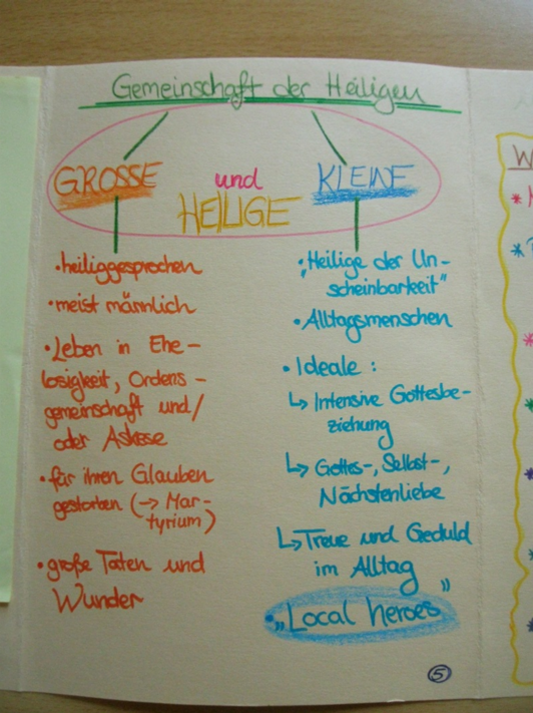 Gemeinschaft der Heiligen
GROSSE und KLEINE
HEILIGE
• heiliggesprochen
• meist männlich
• Leben in Ehe-
losigkeit, Ordens-
gemeinschaft und/
oder Askese
• für ihren Glauben
gestorben (→ Mar-
tyrium)
• große Taten und
Wunder
• „Heilige der Un-
scheinbarkeit"
• Alltagsmenschen
• Ideale :
↳ Intensive Gottesbe-
ziehung
↳ Gottes-, Selbst-,
Nächstenliebe
↳ Treue und Geduld
im Alltag
• „Local heroes"
5